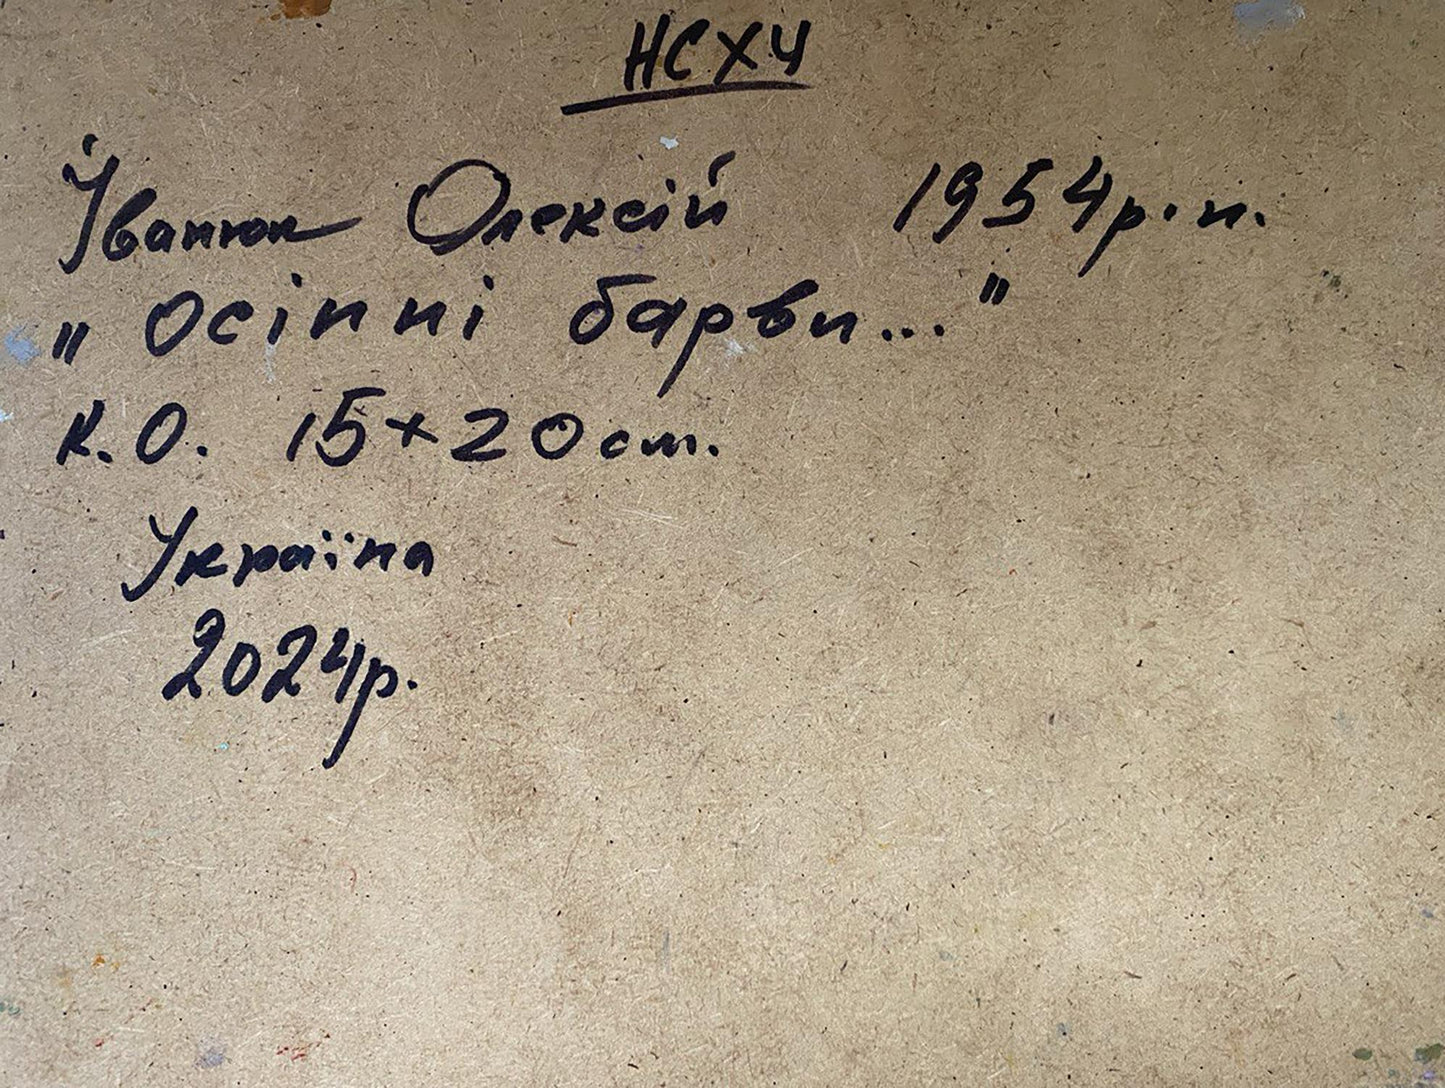 НСХУ
Іванюк Олексій 1954р.н.
„Осінні барви..."
к.о. 15×20см.
Україна
2024р.